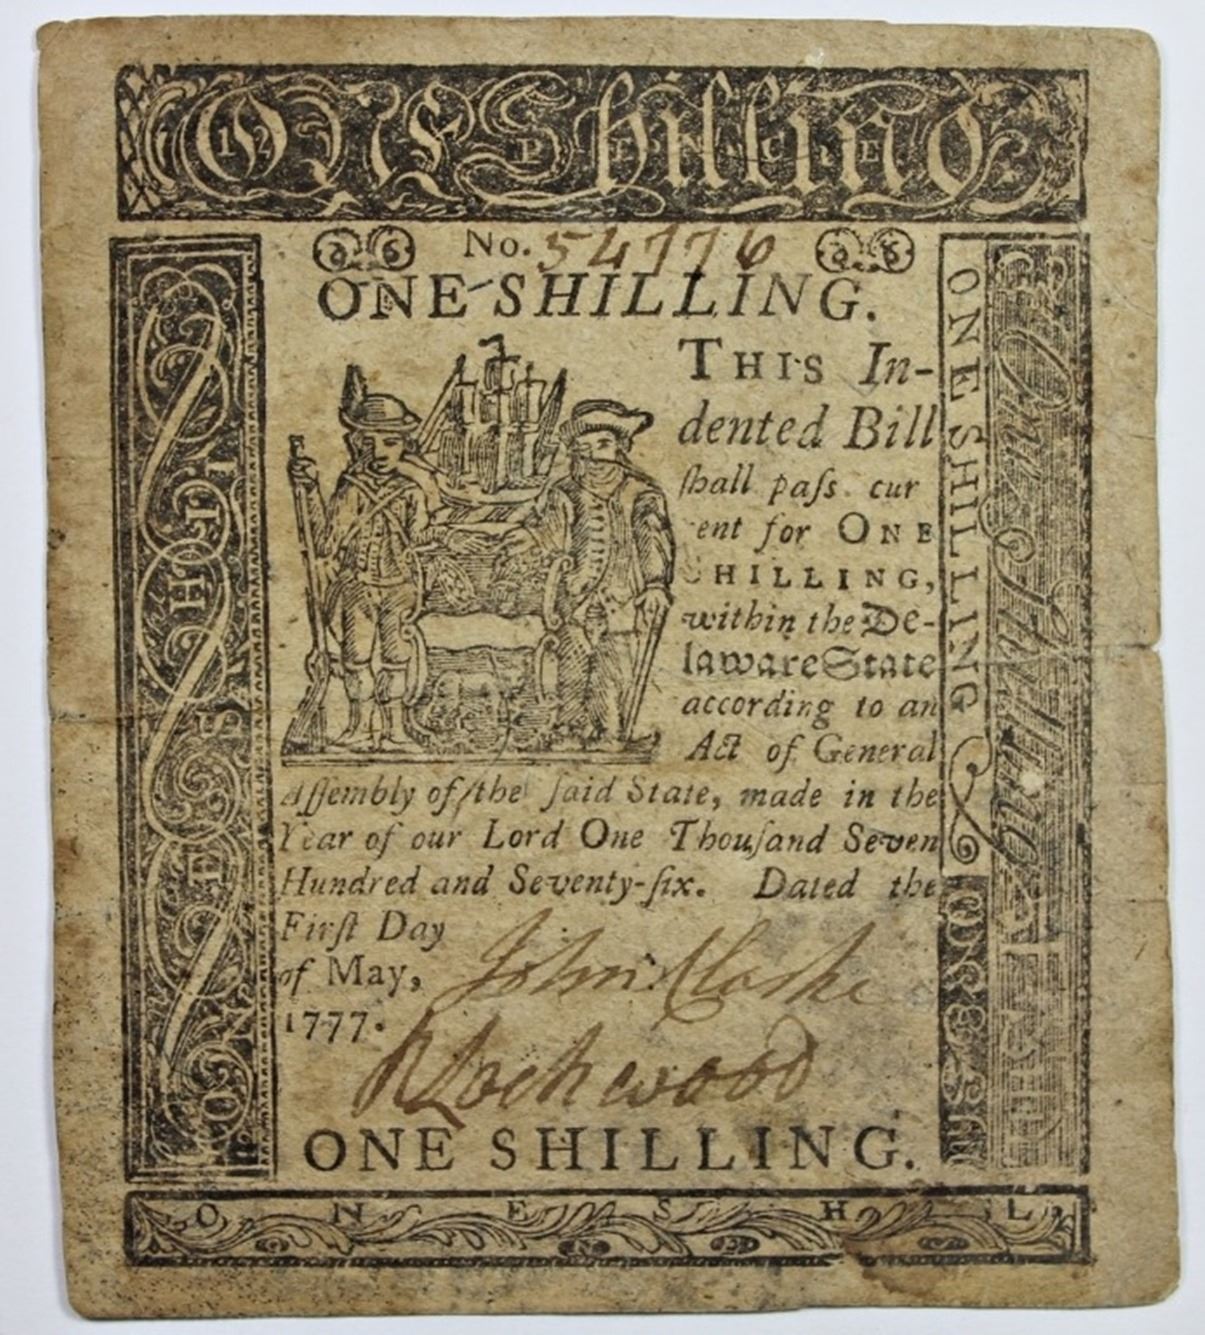 One Shilling
12 PENCE
No. 54776
ONE SHILLING.
THIS In-
dented Bill
ſhall paſs cur
ent for ONE
HILLING,
within the De-
laware State
according to an
Act of General
Aſſembly of the ſaid State, made in the
Year of our Lord One Thouſand Seven
Hundred and Seventy-ſix. Dated the
Firſt Day
of May,
1777.
John Clarke
R Lockwood
ONE SHILLING.
ONE SHIL
ONE SHI
ONE SHILLING
One Shilling